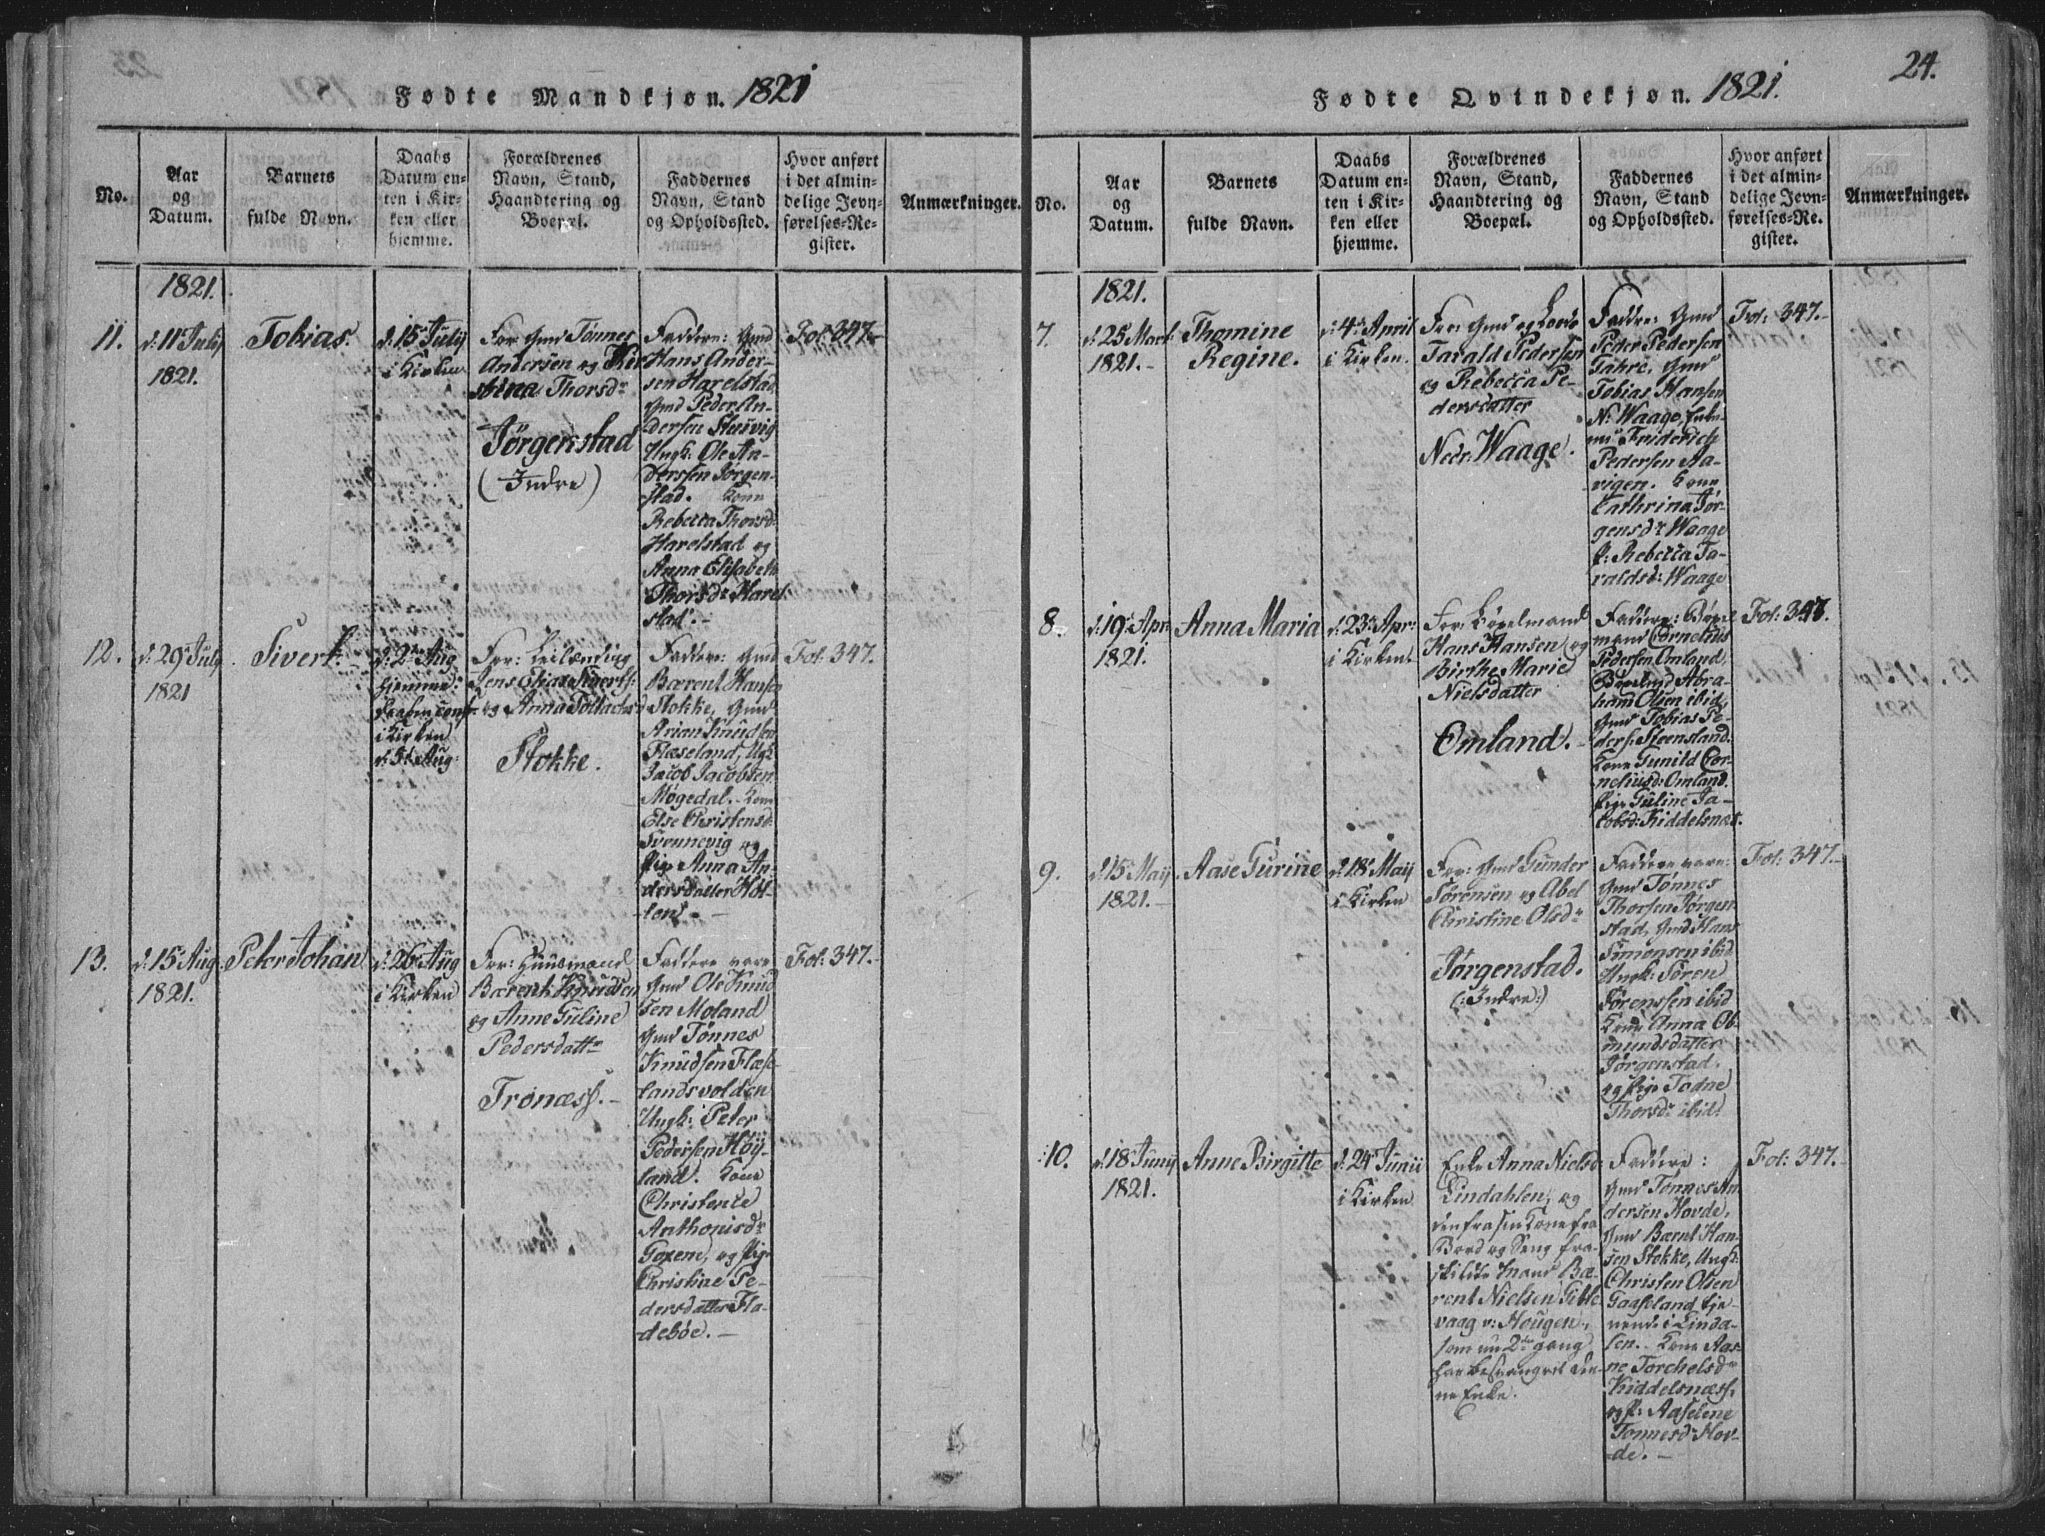 Fødte Mandkjøn. 1821
No.
Aar
og
Datum.
Barnets
fulde Navn.
Daabs
Datum en-
ten i Kir-
ken eller
hjemme.
Forældrenes
Navn, Stand,
Haandtering og
Boepæl.
Faddernes
Navn, Stand
og Opholdssted.
Hvor anført
i det almin-
delige Jevn-
førelses-Re-
gister.
Anmærkninger.
1821.
11.
d: 11 July
1821.
Tobias.
d: 15 July
i Kirken
For: Gmd Tønnes
Andersen og Kir
stina Thorsdr
Jørgenstad
(Indre)
Faddere: Gmd
Hans Ander-
sen Harelstad
Gmd Peder An-
dersen Stuvig
Ungk: Ole An-
derssen Jørgen-
stad. Kone
Rebecca Thorsd:
Harelstad og
Anna Elisabeth
Thorsdr Harel
stad.-
Fol: 347.
12.
d: 29 July
1821
Sivert.
d: 2 Aug
hjemme:
Daaben conf.
i Kirken
d: 5t Aug:
For: Leilænding
Jens Elias Sivertss:
og Anna Tollachsd
Stokke.
Faddere: Gmd
Bærent Hansen
Stokke, Gmd
Arian Knudsen
Flæseland, Ugk:
Jacob Jacobsen
Møgedal. Kone
Else Christensd:
Svennevig og
Pige Anna An-
dersdatter Høl-
land.-
Fol: 347.
13.
d: 15 Aug
1821.
Peter Johan
d: 26 Aug
i Kirken
For: Huusmand
Bærent Knudsen
og Anne Guline
Pedersdattr
Tronæss.-
Faddere vare
Gmd Ole Knud
sen Moland
Gmd Tønnes
Knudsen Flæse-
landsvolden
Ungk: Peter
Pedersen Høy-
land. Kone
Christence
Anthonisdr
Goxem, og Pige
Christine Pe-
dersdatter Fla-
debøe.-
Fol: 347.-
24.
Fødte Qvindekjøn. 1821.
No.
Aar
og
Datum.
Barnets
fulde Navn.
Daabs
Datum en-
ten i Kir-
ken eller
hjemme.
Forældrenes
Navn, Stand,
Haandtering og
Boepæl.
Faddernes
Navn, Stand
og Opholdssted.
Hvor anført
i det almin-
delige Jevn-
førelses-Re-
gister.
Anmærkninger.
1821.
7.
d: 25 Mart:
1821.-
Thomine
Regine.
d: 4 April
i Kirken.
For: Gmd og Lods
Tarald Pedersen
og Rebecca Pe-
dersdatter
Nedr Waage.
Faddre: Gmd
Peder Pedersen
Tahre, Gmd
Tobias Hansen
Nr Waage,
Friderich
Pedersen Aa-
vigen. Kone
Cathrina Jør-
gensdr Waage
P: Rebecca Ta-
raldsd: Waage
Fol: 347.-
8.
d: 19 Apr
1821.
Anna Maria
d: 23 Apr:
i Kirken.
For: Bøxelmand
Hans Hansen og
Birthe Marie
Nielsdatter
Omland.-
Faddere: Bøxel
mand Cornelius
Pedersen Omland,
Bøxelmd Abra-
ham Olsen ibid,
Gmd Tobias Pe-
ders: Steensland.
Kone Gunild Cor-
neliusd: Omland.
Pige Guline Ja-
cobsd: Kiddelsnæs.
Fol: 347.
9.
d: 15 May
1821.-
Aase Gurine
d: 18 May
i Kirken
For: Gmd Gunder
Sørensen og Abel
Christine Olsdr
Jørgenstad.
(: Indre:)
Faddere vare:
Gmd Tønnes
Thorsen Jørgen
stad, Gmd Hans
Simonsen ibid
Ungk: Søren
Sørenssen ibid
Kone Anna Ob-
mundsdatter
Jørgenstad,
og Pige Todne
Thorsdr ibid
Fol: 347.-
10.
d: 18 Juny
1821.
Anne Birgitte
d: 24 Junii
i Kirken
Enke Anna Nielsd:
Lindahlen, og
den fra sin Kone fra
Bord og Seng fra-
skilte Mand Bæ-
rent Nielsen Gitle-
vaag v: Hougen,
som nu 2den gang
har besvangret den-
ne Enke.
Faddere:
Gmd Tønnes An
dersen Hovde,
Gmd Bærnt Han-
sen Stokke, Ungk:
Christen Olsen
Gaaseland tje-
nende i Linda-
len. Kone Aas-
ne Torchelsdr
Kiddelsnæss,
og P: Aaselene
Tonnesdr Hov-
de.-
Fol: 347.-